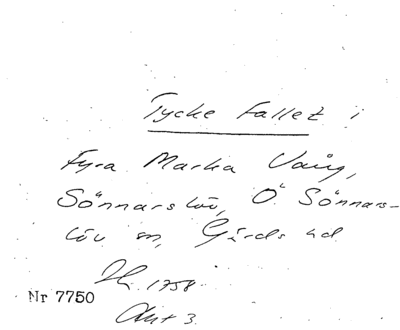 Tycke fallet i
Fyra Marka Vång,
Sönnarslöv, Ö Sönnars-
löv sn, Gärds hd
1758
Nr 7750
Akt 3.